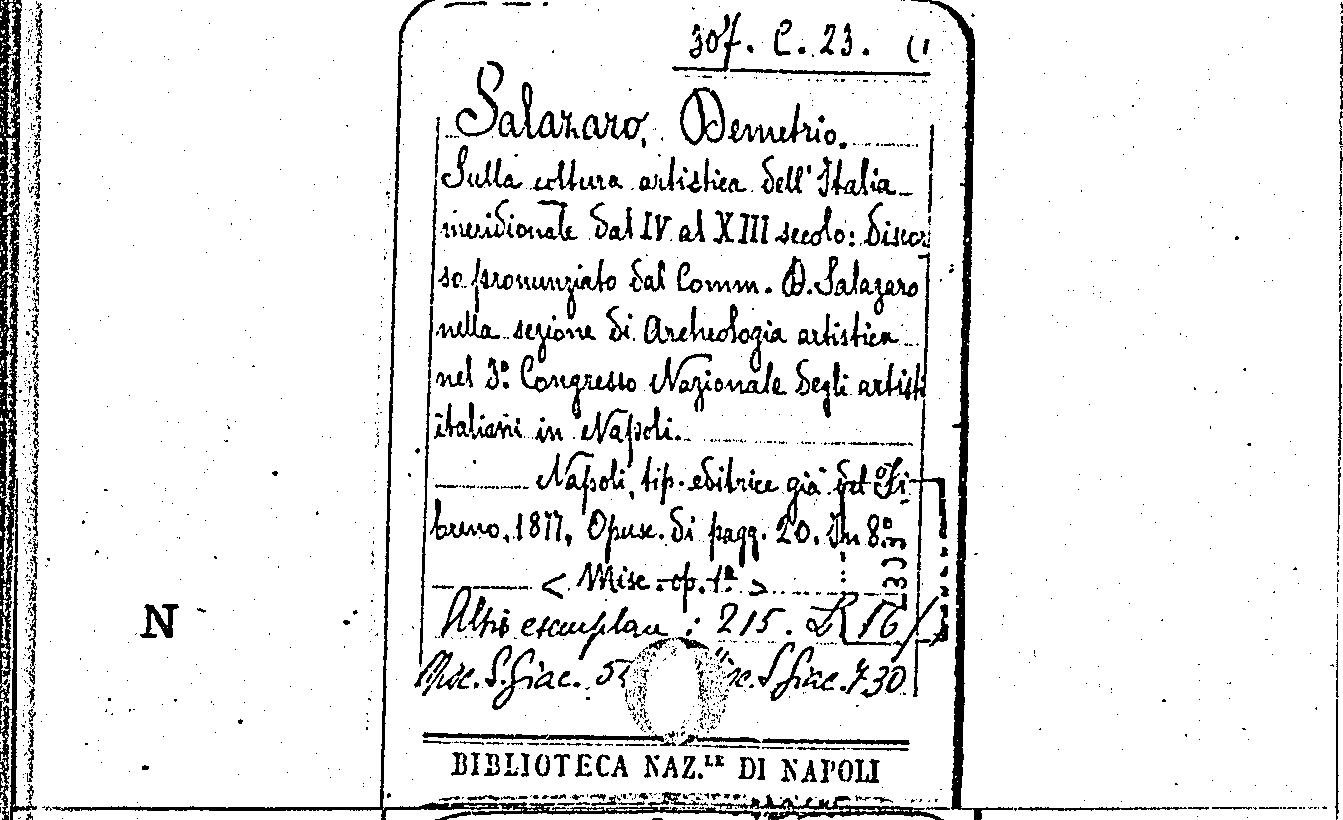 307. C. 23. (1
Salazaro, Demetrio.
Sulla coltura artistica dell'Italia
meridionale dal IV al XIII secolo: discor
so pronunziato dal Comm. D. Salazaro
nella sezione di Archeologia artistica
nel 3º Congresso Nazionale degli artisti
italiani in Napoli.
Napoli, tip. editrice già del Fi
breno, 1877, Opusc. di pagg. 20. In 8º
< Misc. op. 1ª >
N
Altro esemplare: 215. L 16/
Misc. S. Giac. 5 Misc. S. Giac. 730
BIBLIOTECA NAZ.LE DI NAPOLI